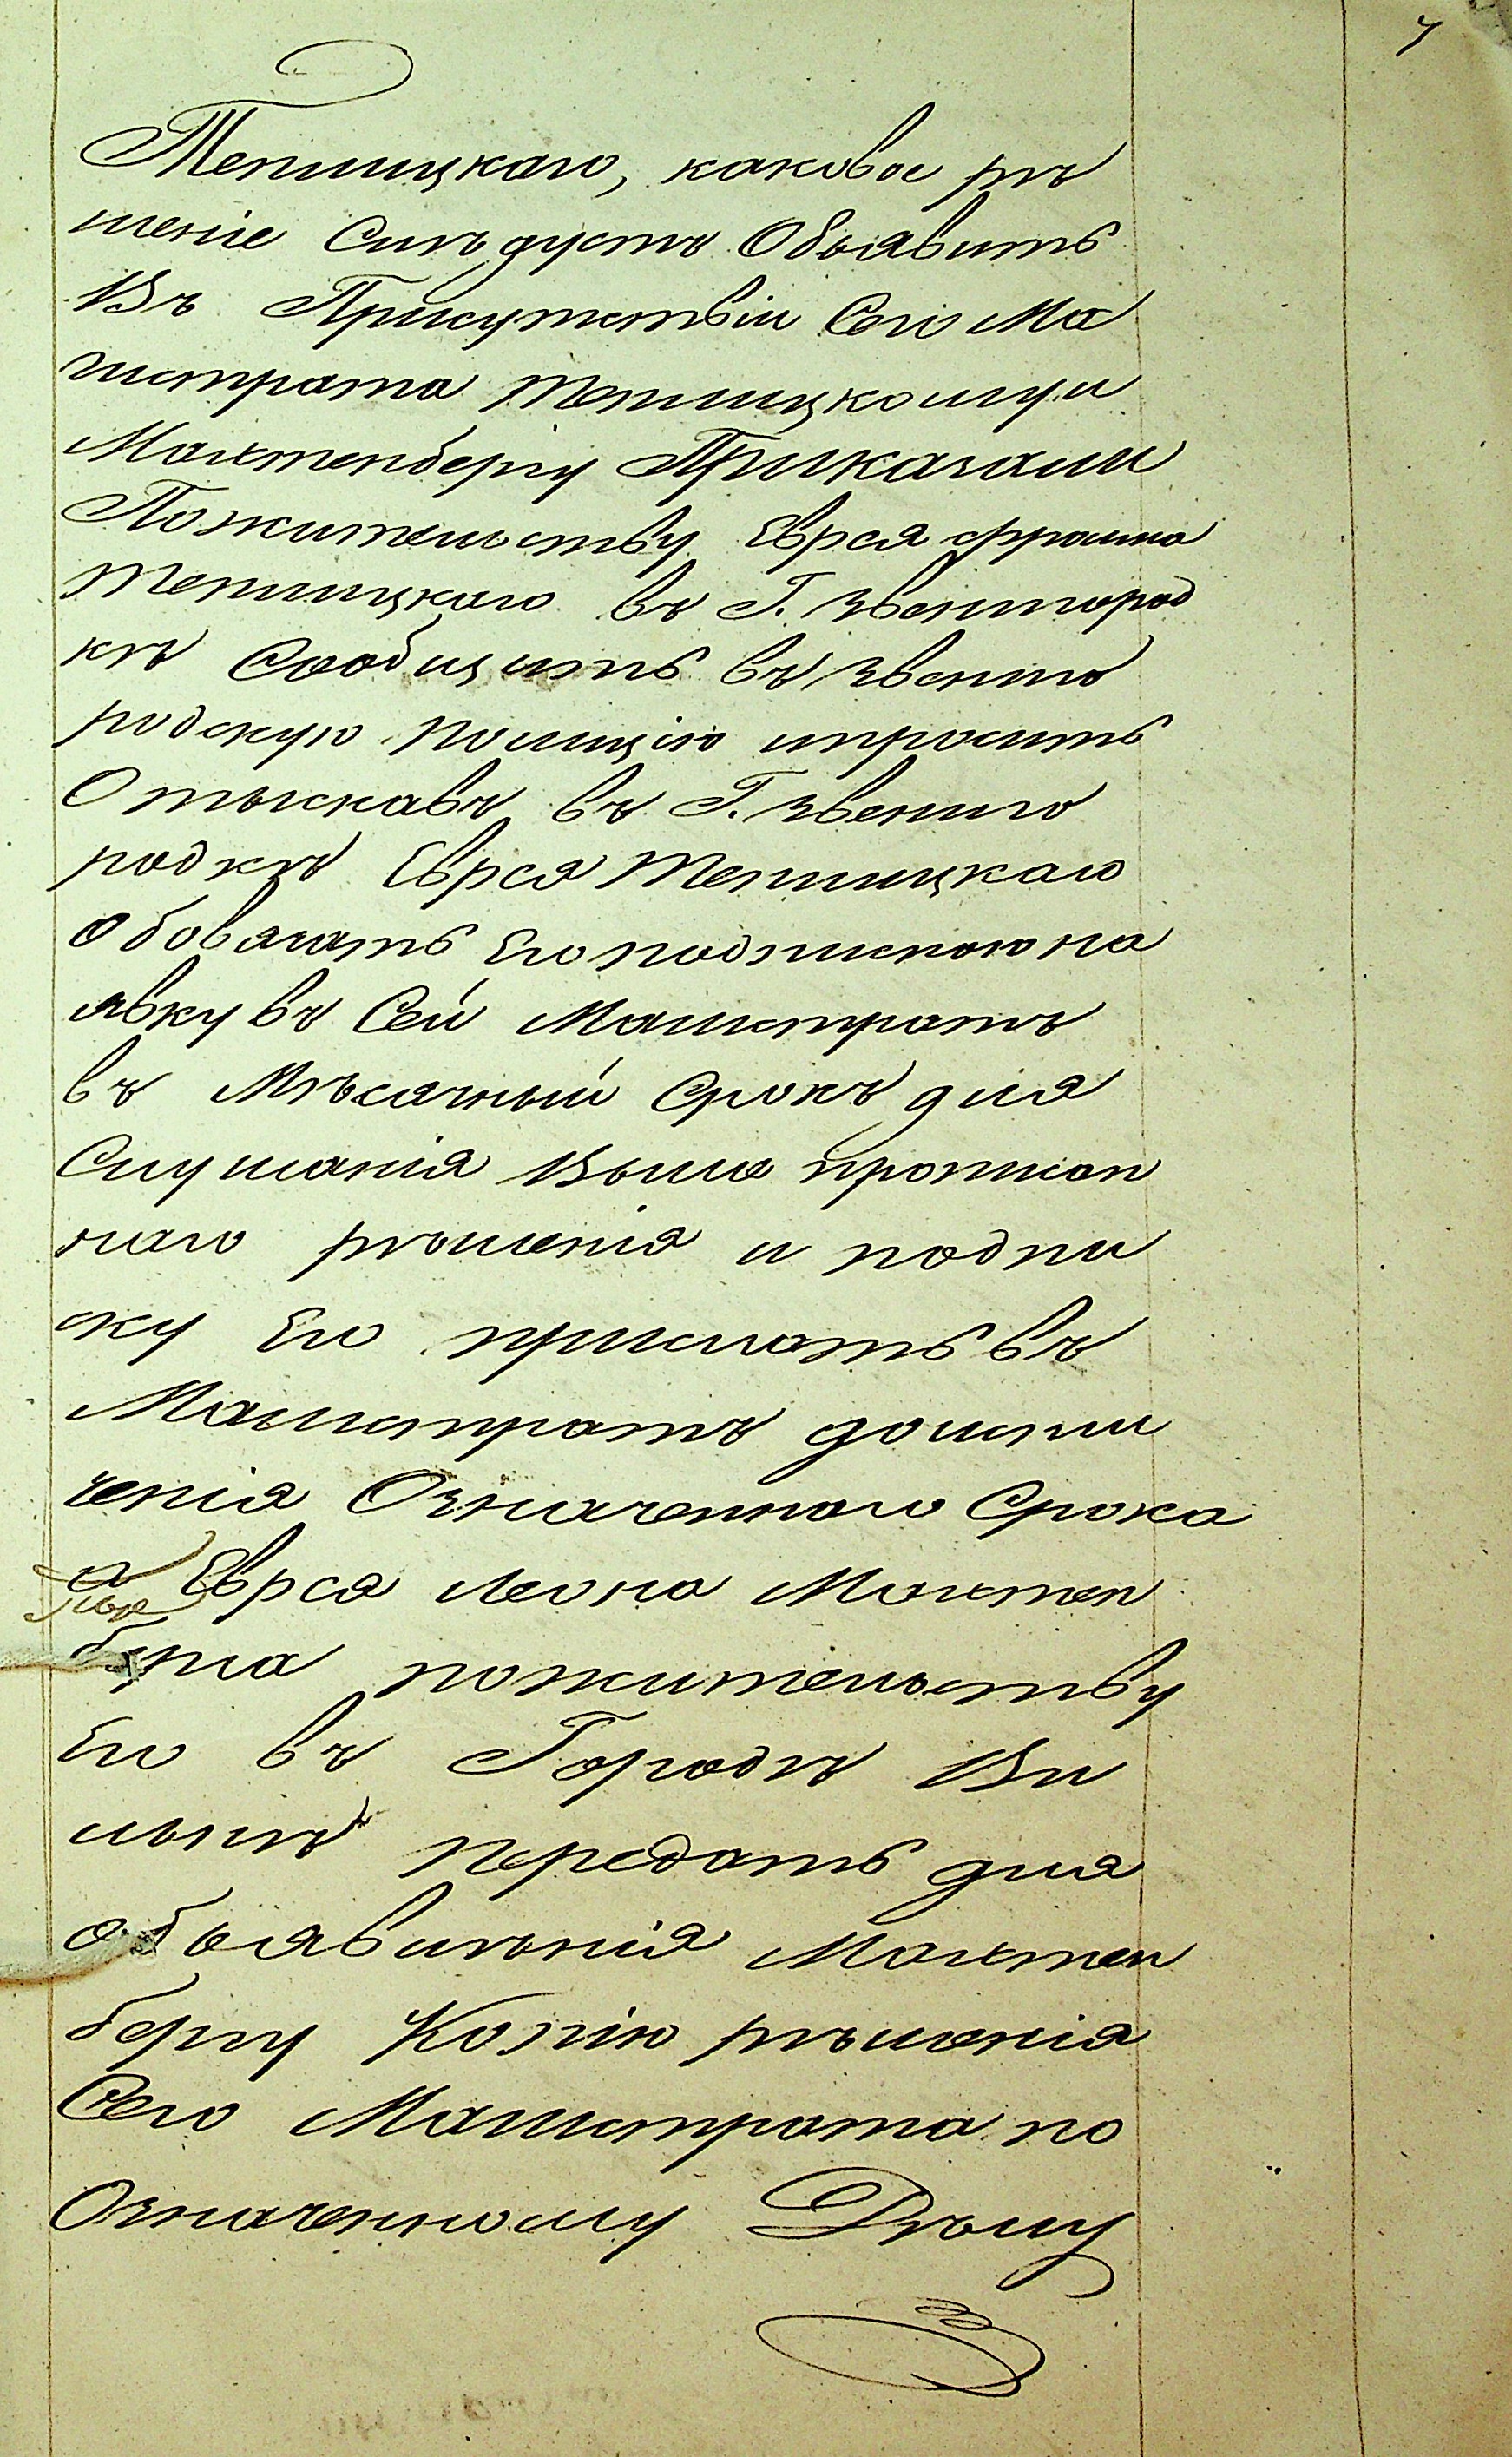 7
Теплицкаго, каковое рѣ
шеніе Слѣдуетъ Объявить
Въ Присутствіи Сего Ма
гистрата Теплицкому и
Махтенбергу Приказали
Пожительству Еврея Фраима
Теплицкаго въ Г. Звенигород
кѣ Сообщить въ Звениго
родскую Полицію ипросить
Отыскавъ въ Г. Звениго
родкѣ Еврея Теплицкаго
обовязать Его подпискою на
явку въ Сей Магистратъ
въ Мѣсячный Срокъ для
Слушанія Выше прописан
наго рѣшенія и подпи
ску Его прислать въ
Магистратъ доисте
ченія Означенного Срока
а Еврея Леона Махтен
берга пожительству
Его въ Городѣ Ви
льнѣ передать для
объявилѣнія Махтен
бергу Копію рѣшенія
Сего Магистрата по
Означенному Дѣлу